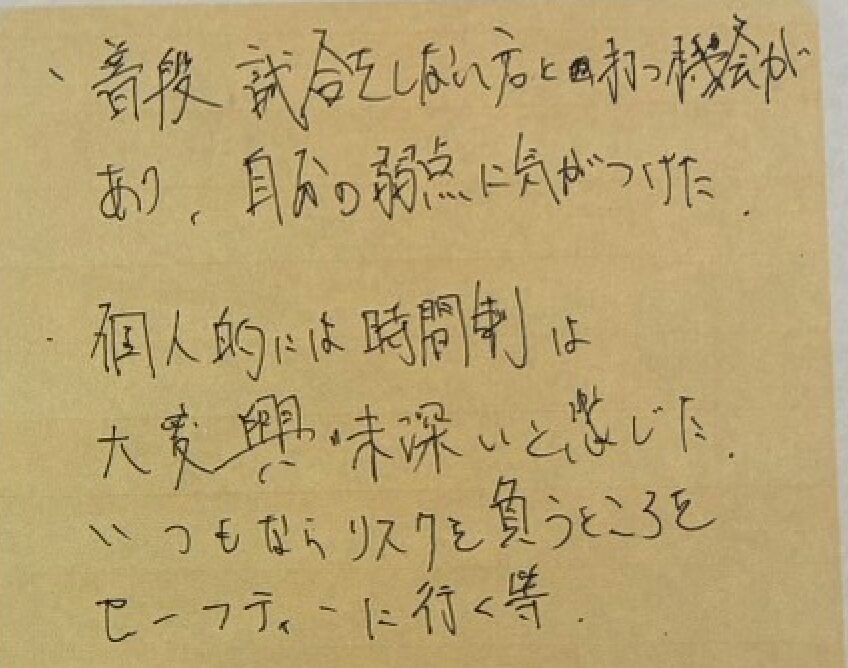 ・普段 試合をしない方と打つ機会が
あり、自分の弱点に気がつけた.
・個人的には時間制は
大変興味深いと感じた.
いつもならリスクを負うところを
セーフティーに行く等.